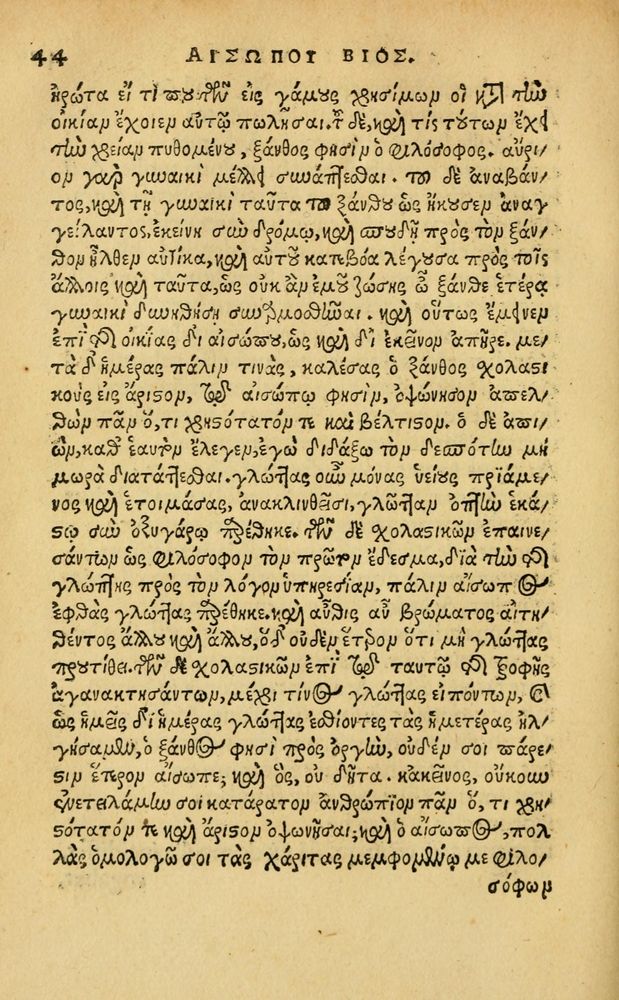 44 ΑΙΣΩΠΟΥ ΒΙΟΣ.
ἠρώτα εἴ τι τουτῶν εἰς γάμους χρήσιμον οἱ κατὰ τὴν
οἰκίαν ἔχοιεν αὐτῷ πωλῆσαι. τοῦ δὲ, καὶ τίς τούτων ἔχει
τὴν χρείαν πυθομένου, ξάνθος φησὶν ὁ φιλόσοφος. αὔρι/
ον γὰρ γυναικὶ μέλλει συνάπτεσθαι. τοῦ δὲ ἀναβάν/
τος, καὶ τῇ γυναικὶ ταῦτα τοῦ ξάνθου ὡς ἤκουσεν ἀναγ
γείλαντος, ἐκείνη σὺν δρόμῳ, καὶ σπουδῇ πρὸς τὸν ξάν/
θον ἦλθεν αὐτίκα, καὶ αὐτοῦ κατεβόα λέγουσα πρὸς τοῖς
ἄλλοις καὶ ταῦτα, ὡς οὐκ ἂν ἐμοῦ ζώσης ὦ ξάνθε ἑτέρᾳ
γυναικὶ δυνηθείης συναρμοσθῆναι. καὶ οὕτως ἔμεινεν
ἐπὶ τῆς οἰκίας δι αἰσώπου, ὡς καὶ δι ἐκεῖνον ἀπῆρε. με/
τὰ δ' ἡμέρας πάλιν τινὰς, καλέσας ὁ ξάνθος σχολαστι
κοὺς εἰς ἄριστον, τῷ αἰσώπῳ φησὶν, ὀψώνησον ἀπελ/
θὼν πᾶν ὅ, τι χρηστότατόν τε καὶ βέλτιστον. ὁ δὲ ἀπι/
ὼν, καθ' ἑαυτὸν ἔλεγεν, ἐγὼ διδάξω τὸν δεσπότην μὴ
μωρὰ διατάττεσθαι. γλώττας οὖν μόνας ὑείους πριάμε/
νος καὶ ἑτοιμάσας, ἀνακλινθεῖσι, γλῶτταν ὀπτὴν ἑκά/
στῳ σὺν ὀξυγάρῳ παρέθηκε. τῶν δὲ σχολαστικῶν ἐπαινε/
σάντων ὡς φιλόσοφον τὸ πρῶτον ἔδεσμα, διὰ τὴν τῆς
γλώττης πρὸς τὸν λόγον ὑπηρεσίαν, πάλιν αἴσωπος
ἑφθὰς γλώττας παρέθηκε. καὶ αὖθις αὖ βρώματος αἰτη/
θέντος ἄλλου καὶ ἄλλου, ὁ δ' οὐδὲν ἕτερον ὅτι μὴ γλώττας
προυτίθει. τῶν δὲ σχολαστικῶν ἐπὶ τῷ ταυτῷ τῆς τροφῆς
ἀγανακτησάντων, μέχρι τίνος γλώττας εἰπόντων, καὶ
ὡς ἡμεῖς δι ἡμέρας γλώττας ἐσθίοντες τὰς ἡμετέρας ἠλ/
γήσαμεν, ὁ ξάνθος φησὶ πρὸς ὀργὴν, οὐδέν σοι πάρε/
στιν ἕτερον αἴσωπε; καὶ ὃς, οὐ δῆτα. κἀκεῖνος, οὔκουν
ἐνετειλάμην σοι κατάρατον ἀνθρώπιον πᾶν ὅ, τι χρη/
στότατόν τε καὶ ἄριστον ὀψωνῆσαι; καὶ ὁ αἴσωπος, πολ
λὰς ὁμολογῶ σοι τὰς χάριτας μεμφομένῳ με φιλο/
σόφων